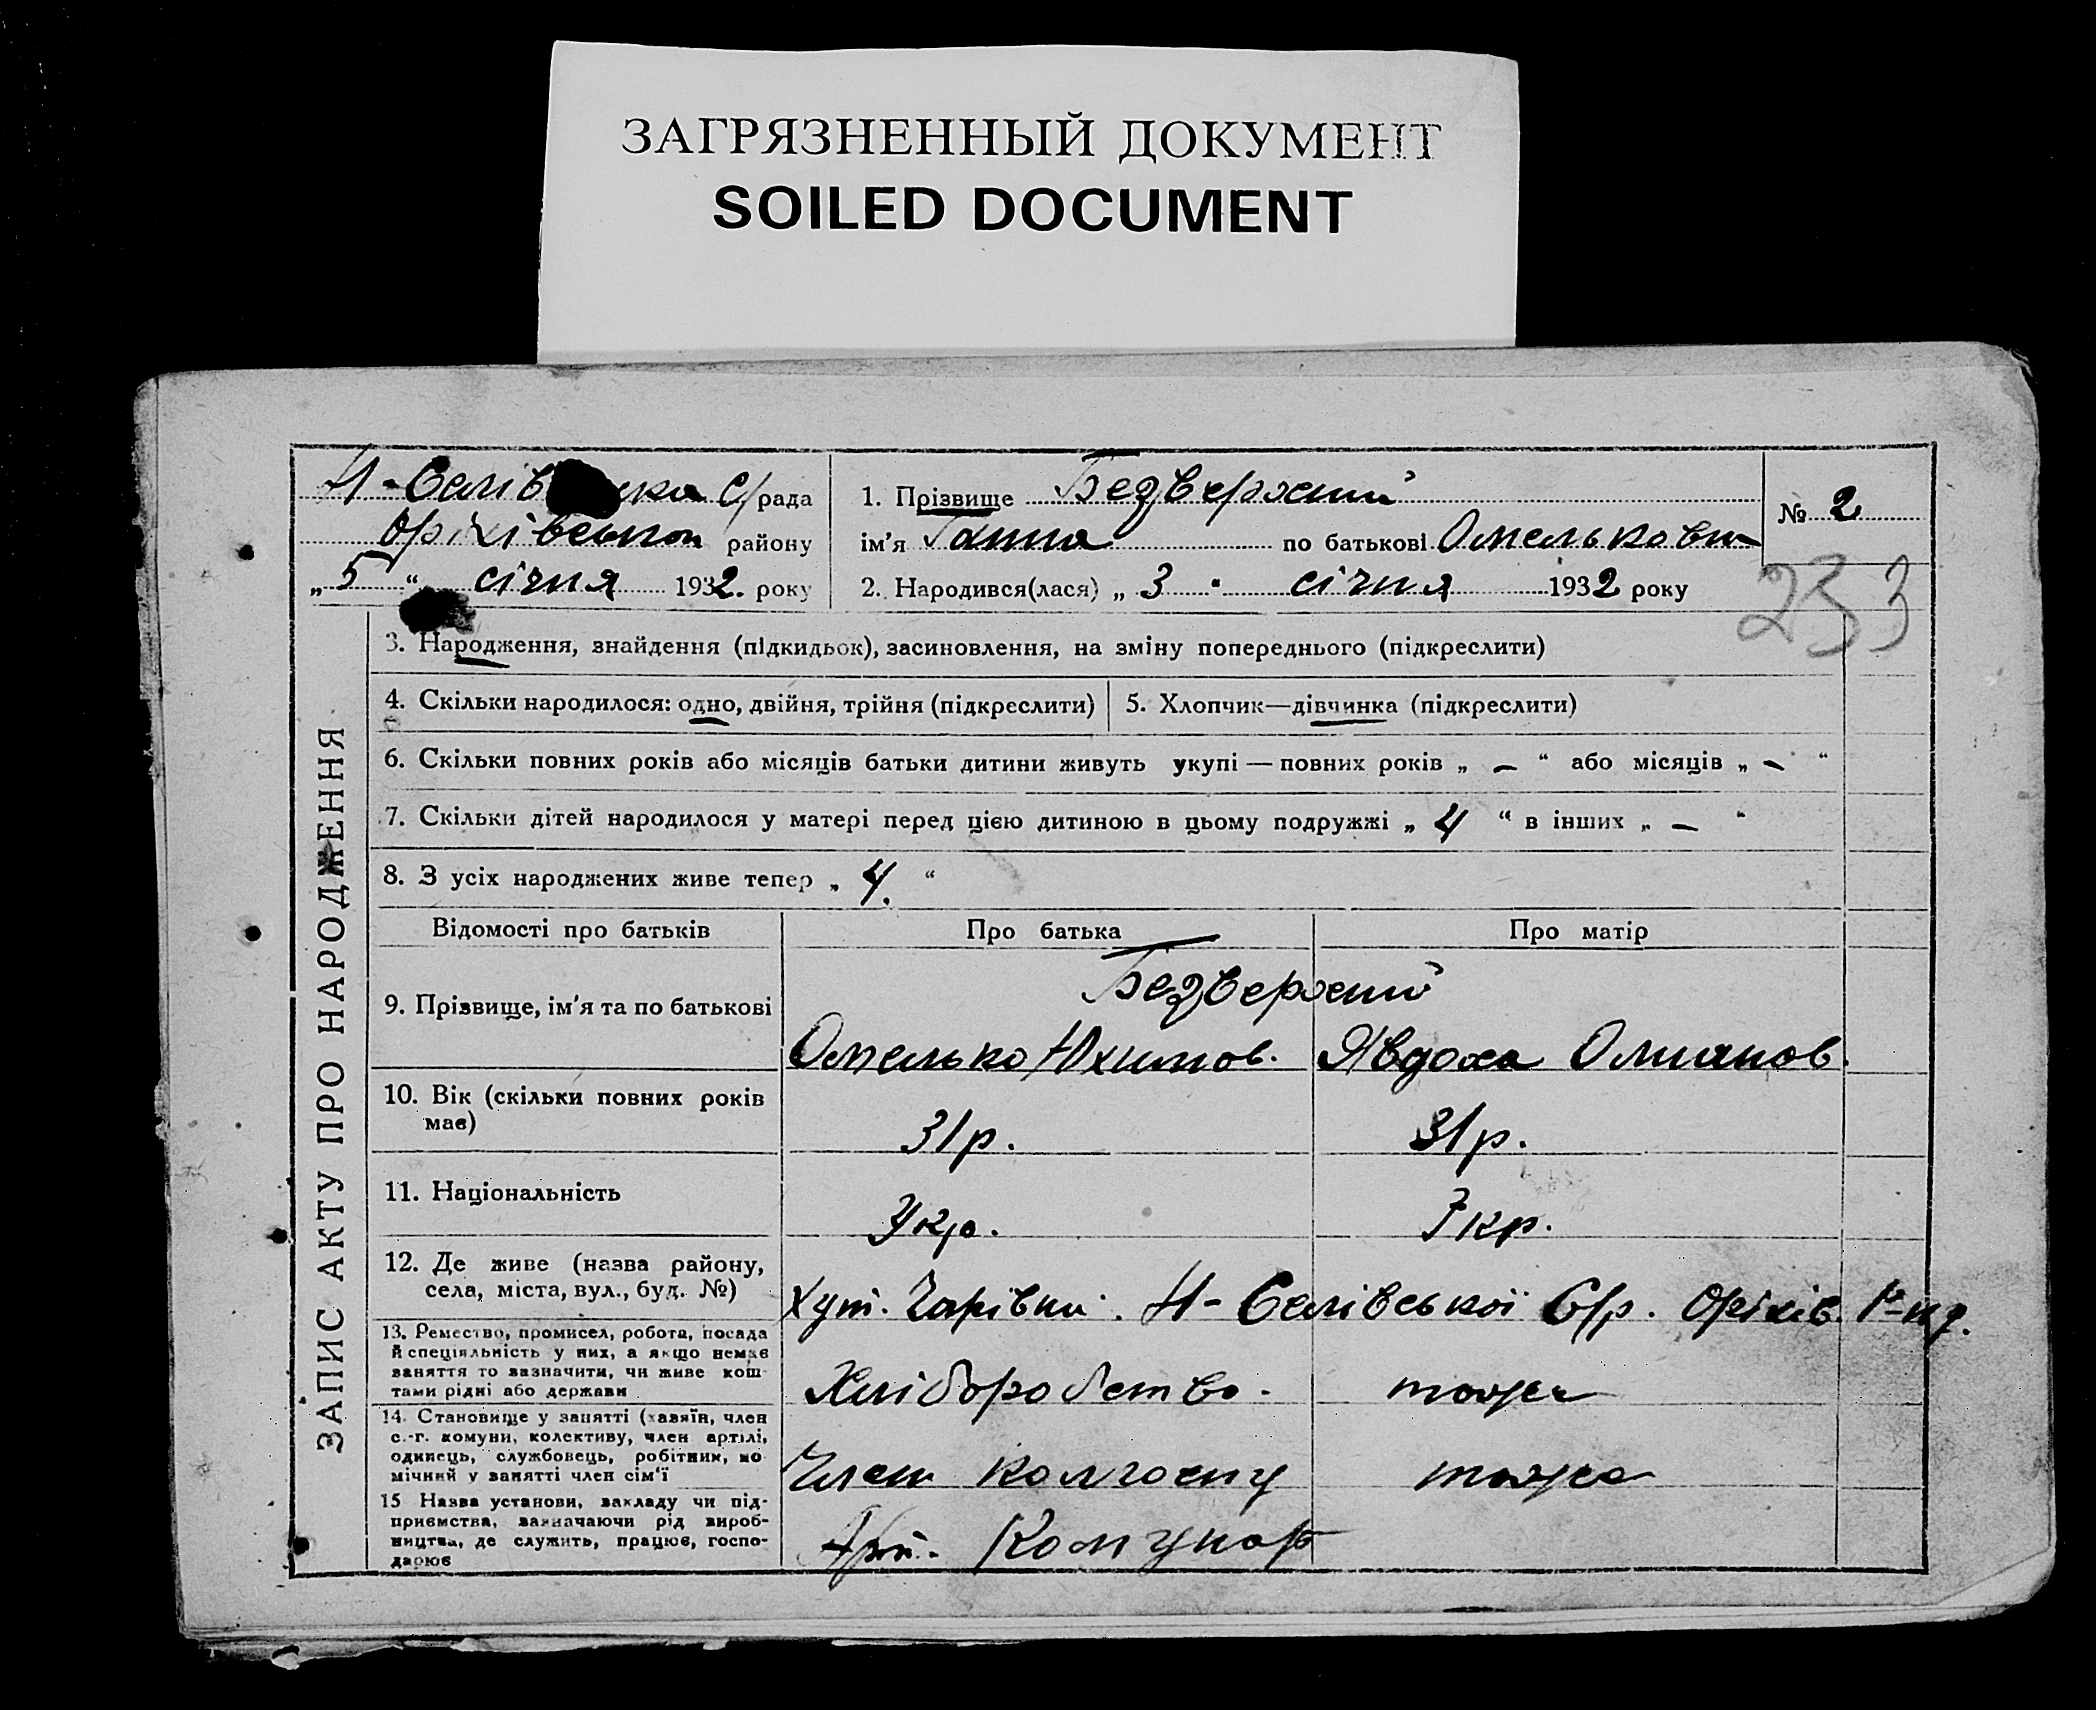 ЗАГРЯЗНЕННЫЙ ДОКУМЕНТ
SOILED DOCUMENT
Н-Селів ска С/рада
Оріхівськом району
„5“ січня 1932. року
1. Прізвище Безверхий
ім'я Ганна по батькові Омельковна
2. Народився(лася) „3“ січня 1932 року
№ 2
233
ЗАПИС АКТУ ПРО НАРОДЖЕННЯ
3. Народження, знайдення (підкидьок), засиновлення, на зміну попереднього (підкреслити)
4. Скільки народилося: одно, двійня, трійня (підкреслити)
5. Хлопчик—дівчинка (підкреслити)
6. Скільки повних років або місяців батьки дитини живуть укупі — повних років „ – “ або місяців „ – “
7. Скільки дітей народилося у матері перед цією дитиною в цьому подружжі „ 4 “ в інших „ – “
8. З усіх народжених живе тепер „ 4. “
Відомості про батьків
Про батька
Про матір
9. Прізвище, ім'я та по батькові
Безверхий
Омелько Юхимов.
Явдоха
10. Вік (скільки повних років
має)
31 р.
31 р.
11. Національність
Укр.
Укр.
12. Де живе (назва району,
села, міста, вул., буд. №)
Хут. Чарівни. Н-Селівської С/р. Оріхів. Р-ну.
13. Ремество, промисел, робота, посада
й спеціяльність у них, а якщо немає
заняття то зазначити, чи живе кош-
тами рідні або держави
Хліборобство.
тоже
14. Становище у занятті (хазяїн, член
с.-г. комуни, колективу, член артілі,
одинець, службовець, робітник, по-
мічний у занятті член сім'ї
Член колгоспу
тоже
15 Назва установи, закладу чи під-
приємства, зазначаючи рід вироб-
ництва, де служить, працює, госпо-
дарює
Арт. Комунар